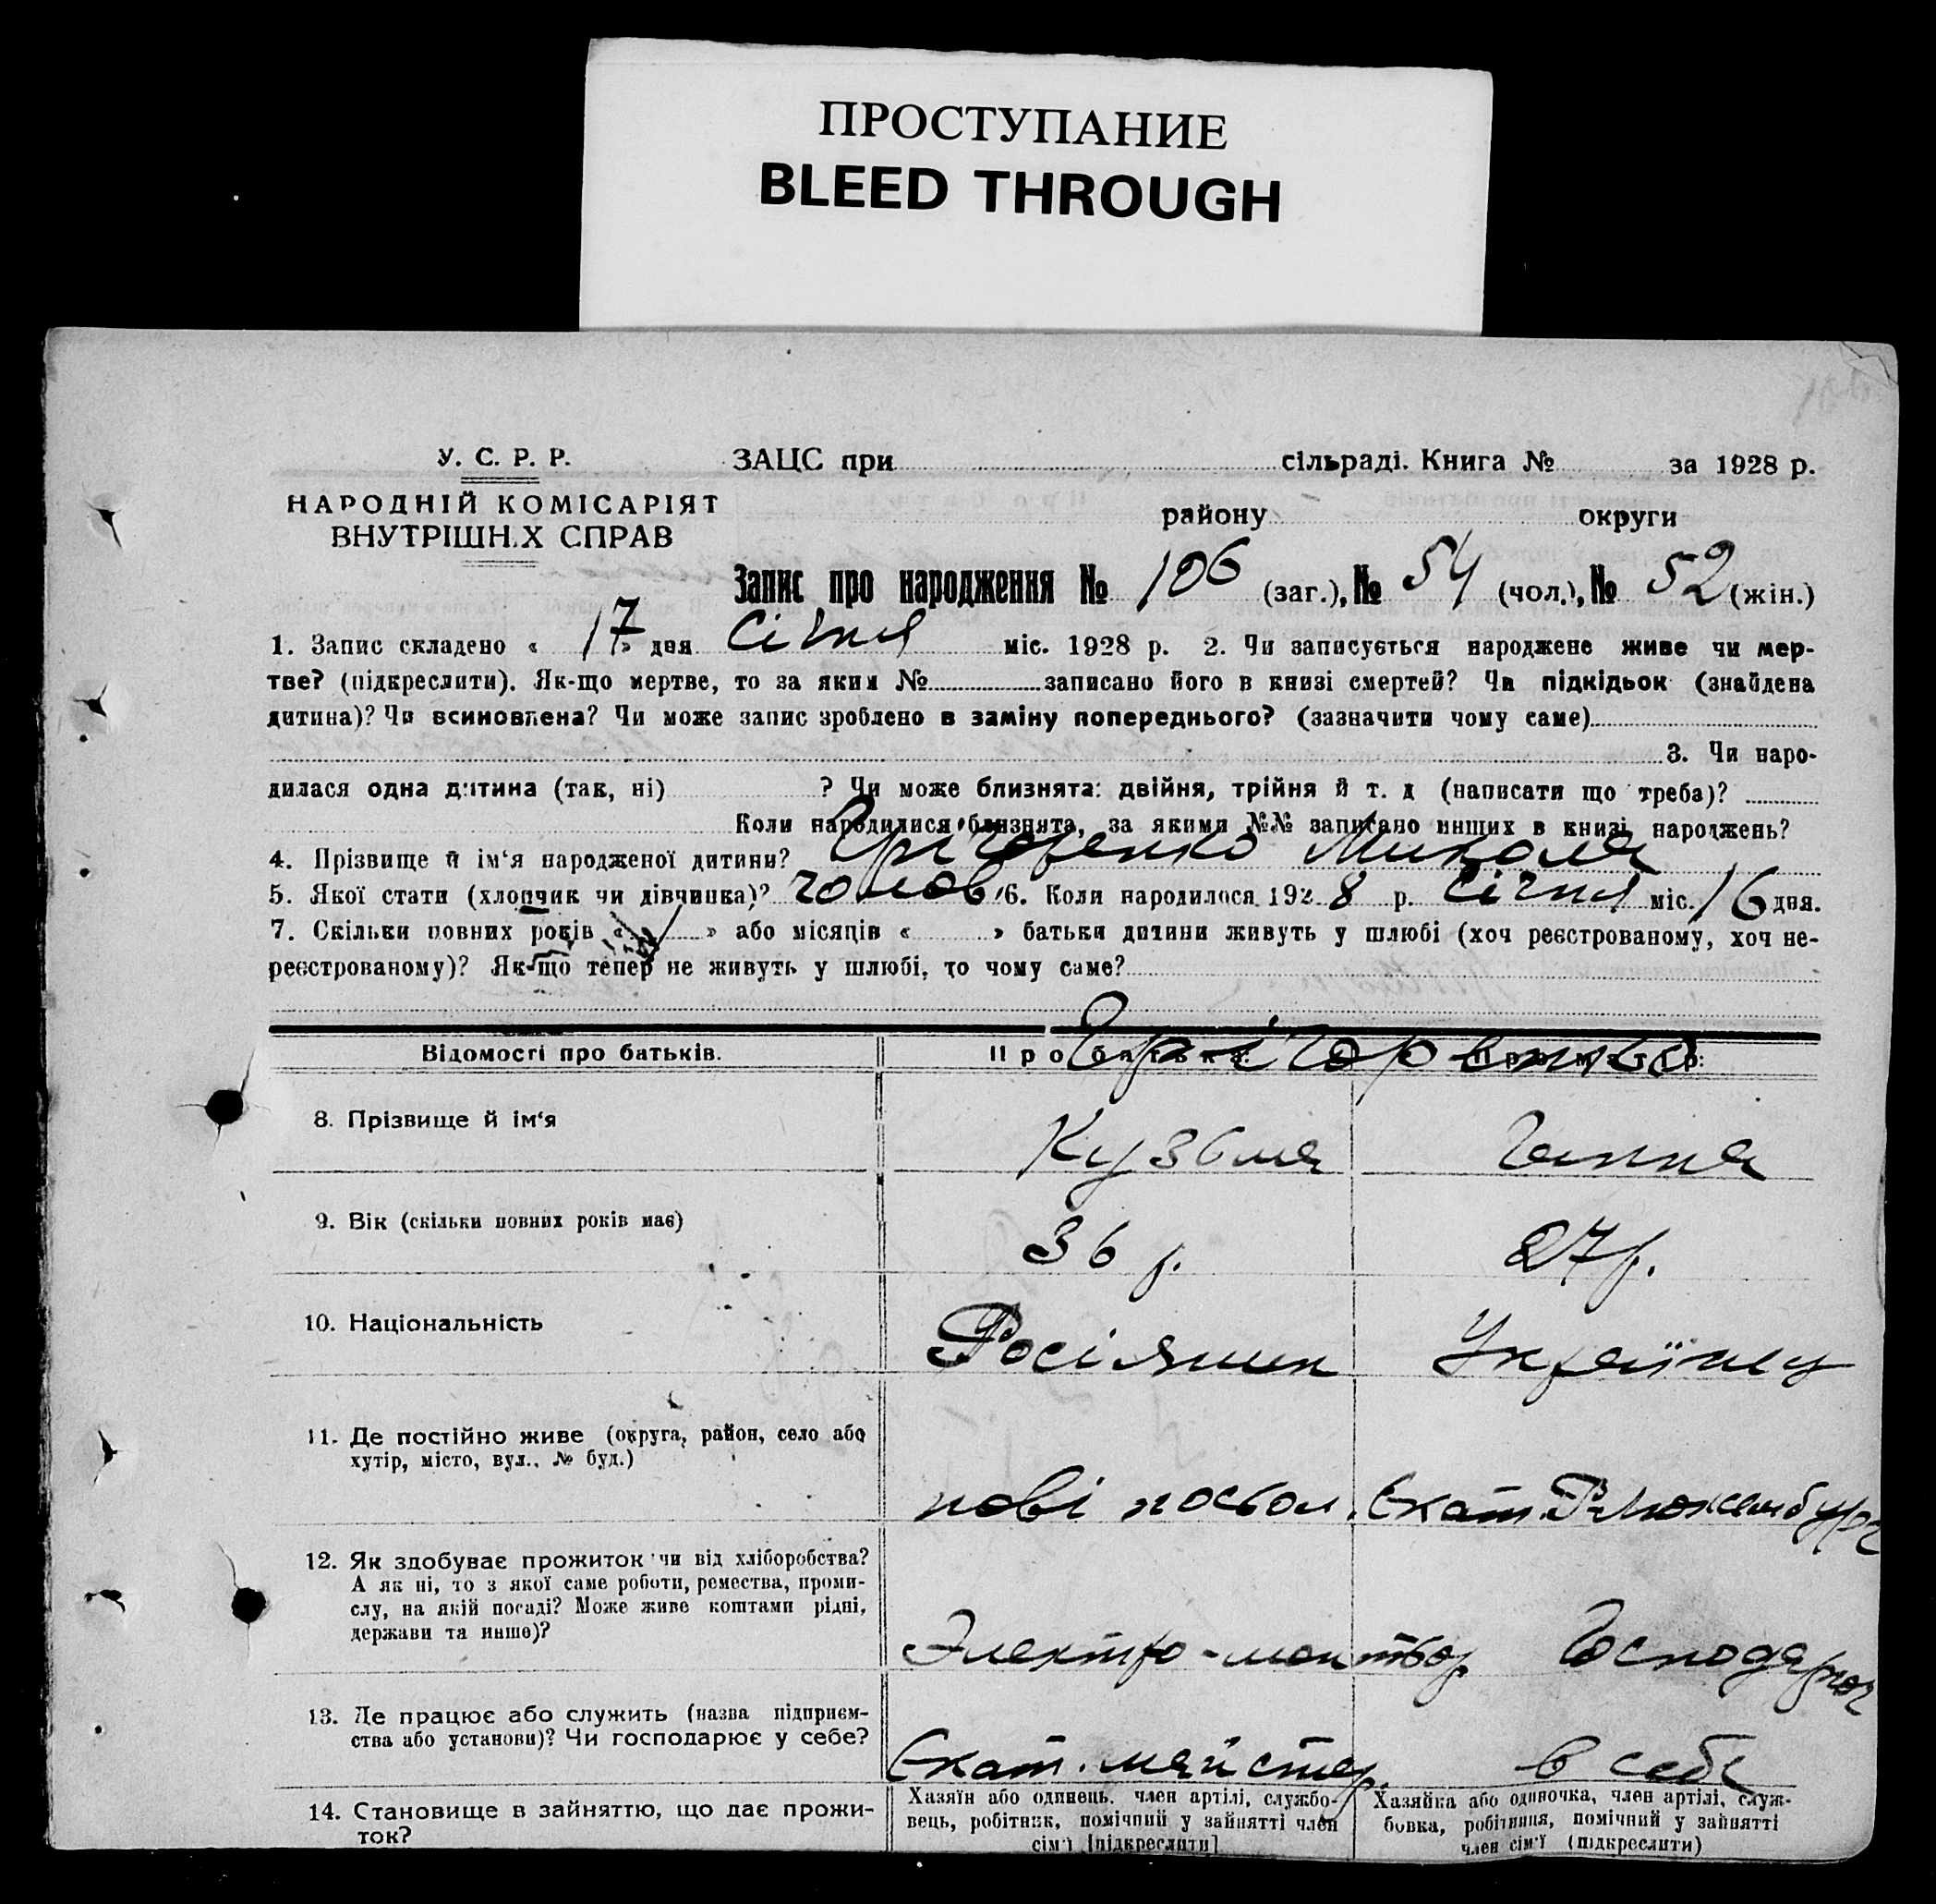 ПРОСТУПАНИЕ
BLEED THROUGH
У. С. Р. Р.
ЗАЦС при сільраді. Книга № за 1928 р.
НАРОДНІЙ КОМІСАРІЯТ
ВНУТРІШН.Х СПРАВ
району округи
Запис про народження № 106 (заг.), № 54 (чол.), № 52 (жін.)
1. Запис складено « 17 » дня Січня міс. 1928 р. 2. Чи записується народжене живе чи мер-
тве? (підкреслити). Як-що мертве, то за яким № записано його в книзі смертей? Чи підкідьок (знайдена
дитина)? Чи всиновлена? Чи може запис зроблено в заміну попереднього? (зазначити чому саме)
3. Чи наро-
дилася одна дитина (так, ні) ? Чи може близнята: двійня, трійня й т. д (написати що треба)?
Коли народилися близнята, за якими №№ записано инших в книзі народжень?
4. Прізвище й ім‘я народженої дитини? Григоренко Микола
5. Якої стати (хлопчик чи дівчинка)? чолов 6. Коли народилося 1928 р. Січня міс. 16 дня.
7. Скільки повних років « » або місяців « » батьки дитини живуть у шлюбі (хоч реєстрованому, хоч не-
реєстрованому)? Як-що тепер не живуть у шлюбі, то чому саме?
Відомості про батьків. Про батька: Про матір:
Григоренко
8. Прізвище й ім‘я Кузьма Ганна
9. Вік (скільки повних років має) 36 р. 27 р.
10. Національність Росіянин Українку
11. Де постійно живе (округа, район, село або
хутір, місто, вул.. № буд.)
нові посьол. Екат. Р-Люксембург
12. Як здобуває прожиток чи від хліборобства?
А як ні, то з якої саме роботи, ремества, проми-
слу, на якій посаді? Може живе коштами рідні,
держави та инше)?
Электро-монтьор Господарюг
13. Де працює або служить (назва підприєм-
ства або установи)? Чи господарює у себе?
Екат. майстер. в себе
14. Становище в зайняттю, що дає прожи-
ток?
Хазяїн або одинець. член артілі, службо-
вець, робітник, помічний у зайнятті член
сім‘ї [підкреслити]
Хазяйка або одиночка, член артілі, служ-
бовка, робітниця, помічний у зайнятті
член сім‘ї (підкреслити)